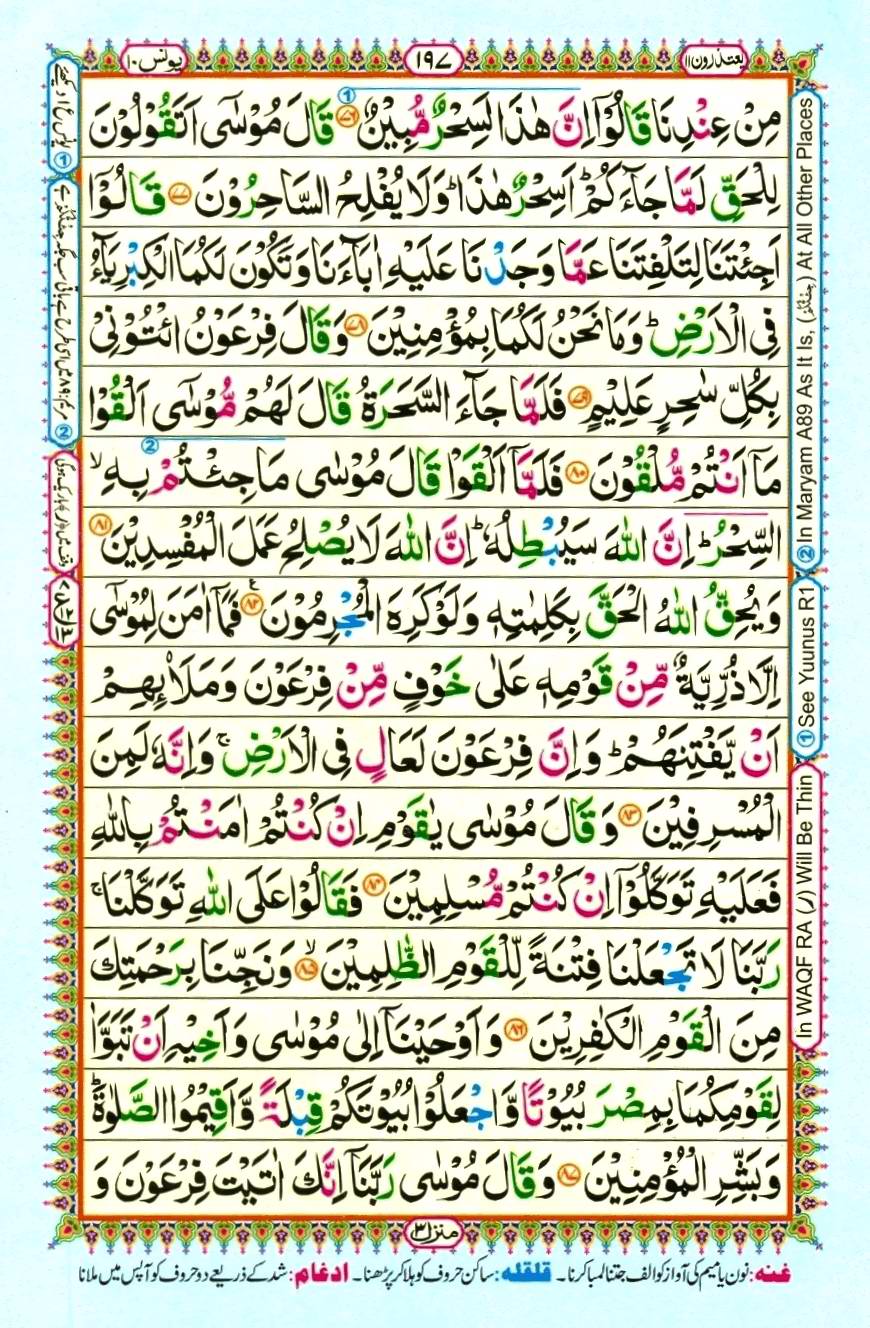 یعتذرون ۱۱
۱۹۷
یونس ۱۰
مِنْ عِنْدِنَا قَالُوْۤا اِنَّ هٰذَا لَسِحْرٌ مُّبِیْنٌ ﴿۷۶﴾ قَالَ مُوْسٰۤی اَتَقُوْلُوْنَ
لِلْحَقِّ لَمَّا جَآءَكُمْ ؕ اَسِحْرٌ هٰذَا ؕ وَلَا یُفْلِحُ السَّاحِرُوْنَ ﴿۷۷﴾ قَالُوْۤا
اَجِئْتَنَا لِتَلْفِتَنَا عَمَّا وَجَدْنَا عَلَیْهِ اٰبَآءَنَا وَتَكُوْنَ لَكُمَا الْكِبْرِیَآءُ
فِی الْاَرْضِ ؕ وَمَا نَحْنُ لَكُمَا بِمُؤْمِنِیْنَ ﴿۷۸﴾ وَقَالَ فِرْعَوْنُ ائْتُوْنِیْ
بِكُلِّ سٰحِرٍ عَلِیْمٍ ﴿۷۹﴾ فَلَمَّا جَآءَ السَّحَرَةُ قَالَ لَهُمْ مُّوْسٰۤی اَلْقُوْا
مَاۤ اَنْتُمْ مُّلْقُوْنَ ﴿۸۰﴾ فَلَمَّاۤ اَلْقَوْا قَالَ مُوْسٰی مَا جِئْتُمْ بِهِ ۙ
السِّحْرُ ؕ اِنَّ اللّٰهَ سَیُبْطِلُهٗ ؕ اِنَّ اللّٰهَ لَا یُصْلِحُ عَمَلَ الْمُفْسِدِیْنَ ﴿۸۱﴾
وَیُحِقُّ اللّٰهُ الْحَقَّ بِكَلِمٰتِهٖ وَلَوْ كَرِهَ الْمُجْرِمُوْنَ ﴿۸۲﴾ فَمَاۤ اٰمَنَ لِمُوْسٰۤی
اِلَّا ذُرِّیَّةٌ مِّنْ قَوْمِهٖ عَلٰی خَوْفٍ مِّنْ فِرْعَوْنَ وَمَلَا۟ئِهِمْ
اَنْ یَّفْتِنَهُمْ ؕ وَاِنَّ فِرْعَوْنَ لَعَالٍ فِی الْاَرْضِ ۚ وَاِنَّهٗ لَمِنَ
الْمُسْرِفِیْنَ ﴿۸۳﴾ وَقَالَ مُوْسٰی یٰقَوْمِ اِنْ كُنْتُمْ اٰمَنْتُمْ بِاللّٰهِ
فَعَلَیْهِ تَوَكَّلُوْۤا اِنْ كُنْتُمْ مُّسْلِمِیْنَ ﴿۸۴﴾ فَقَالُوْا عَلَی اللّٰهِ تَوَكَّلْنَا ۚ
رَبَّنَا لَا تَجْعَلْنَا فِتْنَةً لِّلْقَوْمِ الظّٰلِمِیْنَ ﴿۸۵﴾ ۙ وَنَجِّنَا بِرَحْمَتِكَ
مِنَ الْقَوْمِ الْكٰفِرِیْنَ ﴿۸۶﴾ وَاَوْحَیْنَاۤ اِلٰی مُوْسٰی وَاَخِیْهِ اَنْ تَبَوَّاٰ
لِقَوْمِكُمَا بِمِصْرَ بُیُوْتًا وَّاجْعَلُوْا بُیُوْتَكُمْ قِبْلَةً وَّاَقِیْمُوا الصَّلٰوةَ ؕ
وَبَشِّرِ الْمُؤْمِنِیْنَ ﴿۸۷﴾ وَقَالَ مُوْسٰی رَبَّنَاۤ اِنَّكَ اٰتَیْتَ فِرْعَوْنَ وَ
منزل ۳
غنه: نون یا میم کی آواز کو الف جتنا لمبا کرنا۔ قلقله: ساکن حروف کو ہلا کر پڑھنا۔ ادغام: شد کے ذریعے دو حروف کو آپس میں ملانا
In WAQF RA (ر) Will Be Thin
① See Yuunus R1
② In Maryam A89 As It Is. (جِئْتُمْ) At All Other Places